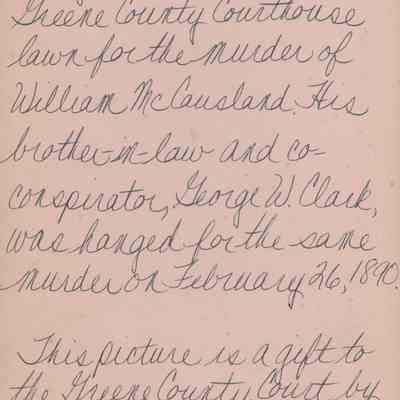 Greene County Courthouse
lawn for the murder of
William McCausland. His
brother-in-law and co-
conspirator, George W. Clark,
was hanged for the same
murder on February 26, 1890.
This picture is a gift to
the Greene County Court by